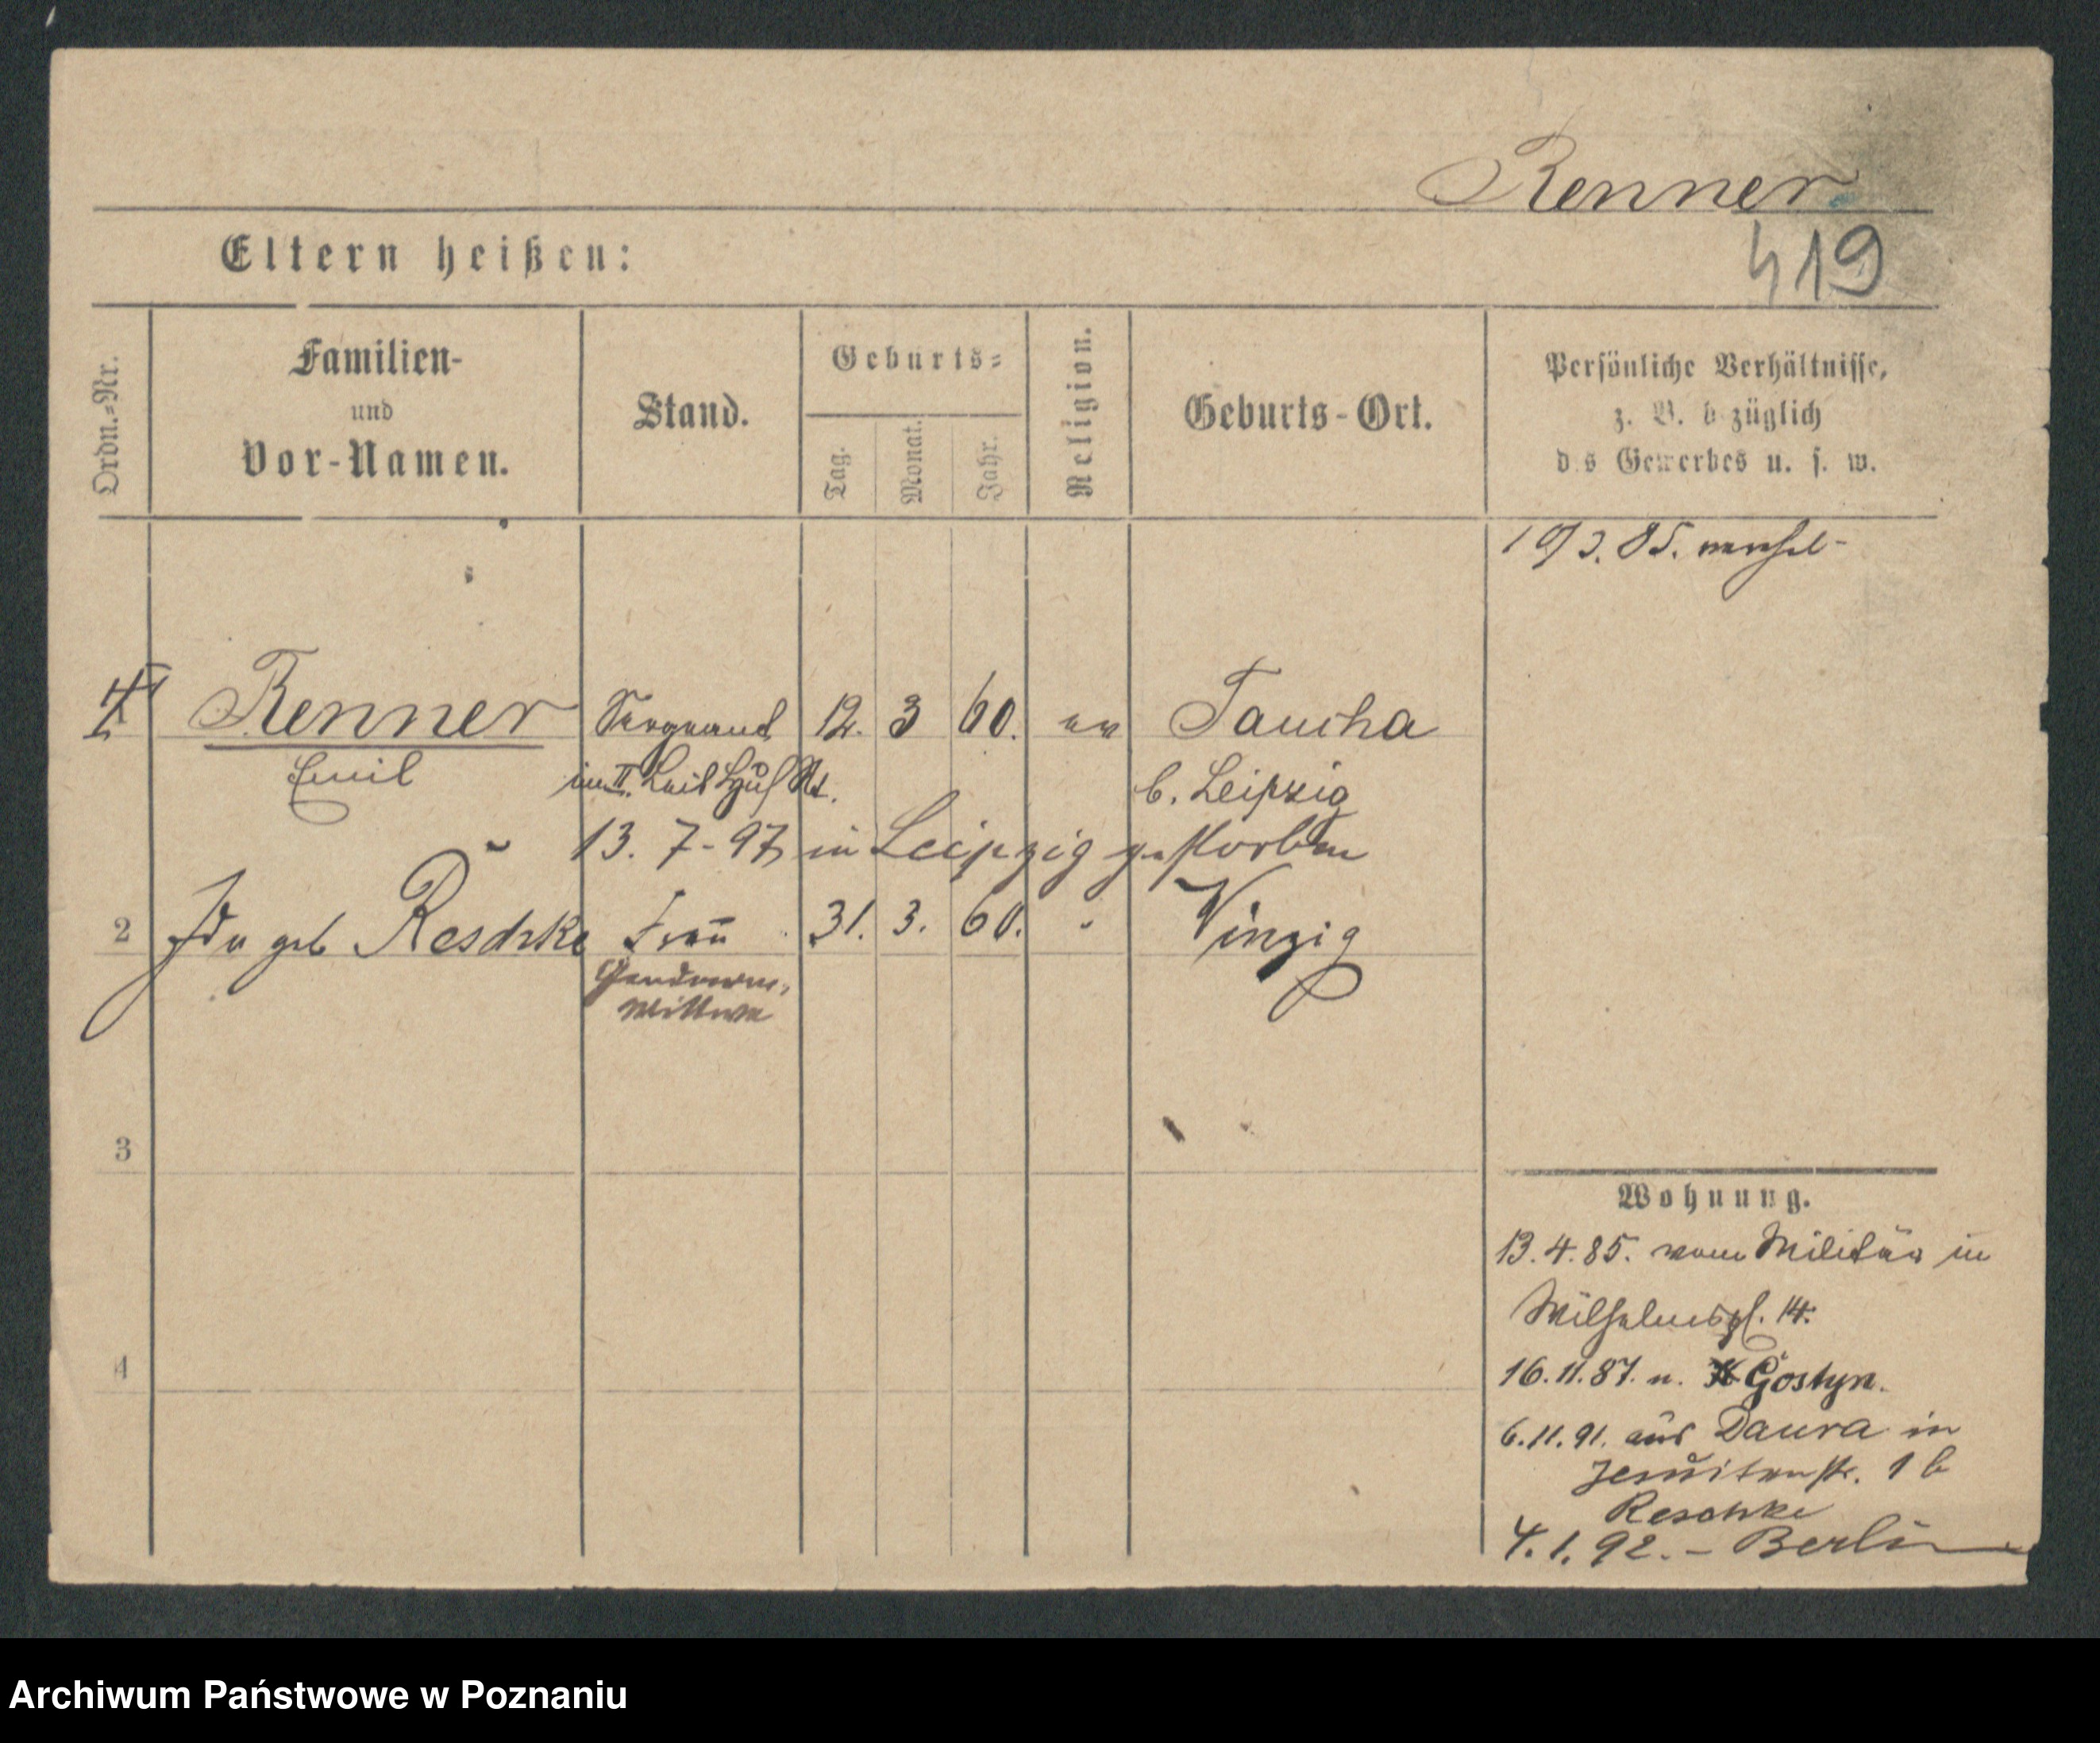 Renner
419
Eltern heißen:
Ordn.=Nr.
Familien-
und
Vor-Namen.
Stand.
Geburts=
Tag.
Monat.
Jahr.
Religion.
Geburts-Ort.
Persönliche Verhältnisse,
z. B. bezüglich
des Gewerbes u. s. w.
1
Renner
Emil
Sergeant
im II. Leib Hus Rt.
12. 3 60. ev
Taucha
b. Leipzig
13. 7-97 in Leipzig gestorben
2
Ida geb Reschke
Frau
Gendarm-
Wittwe
31. 3. 60. "
Winzig
3
4
Wohnung.
13.4.85. vom Militär in
Wilhelmspl. 14.
16.11.87. n. Gostyn.
6.11.91. aus Daura in
Jesuitenstr. 1b
Reschke
4.1.92. – Berlin
Archiwum Państwowe w Poznaniu